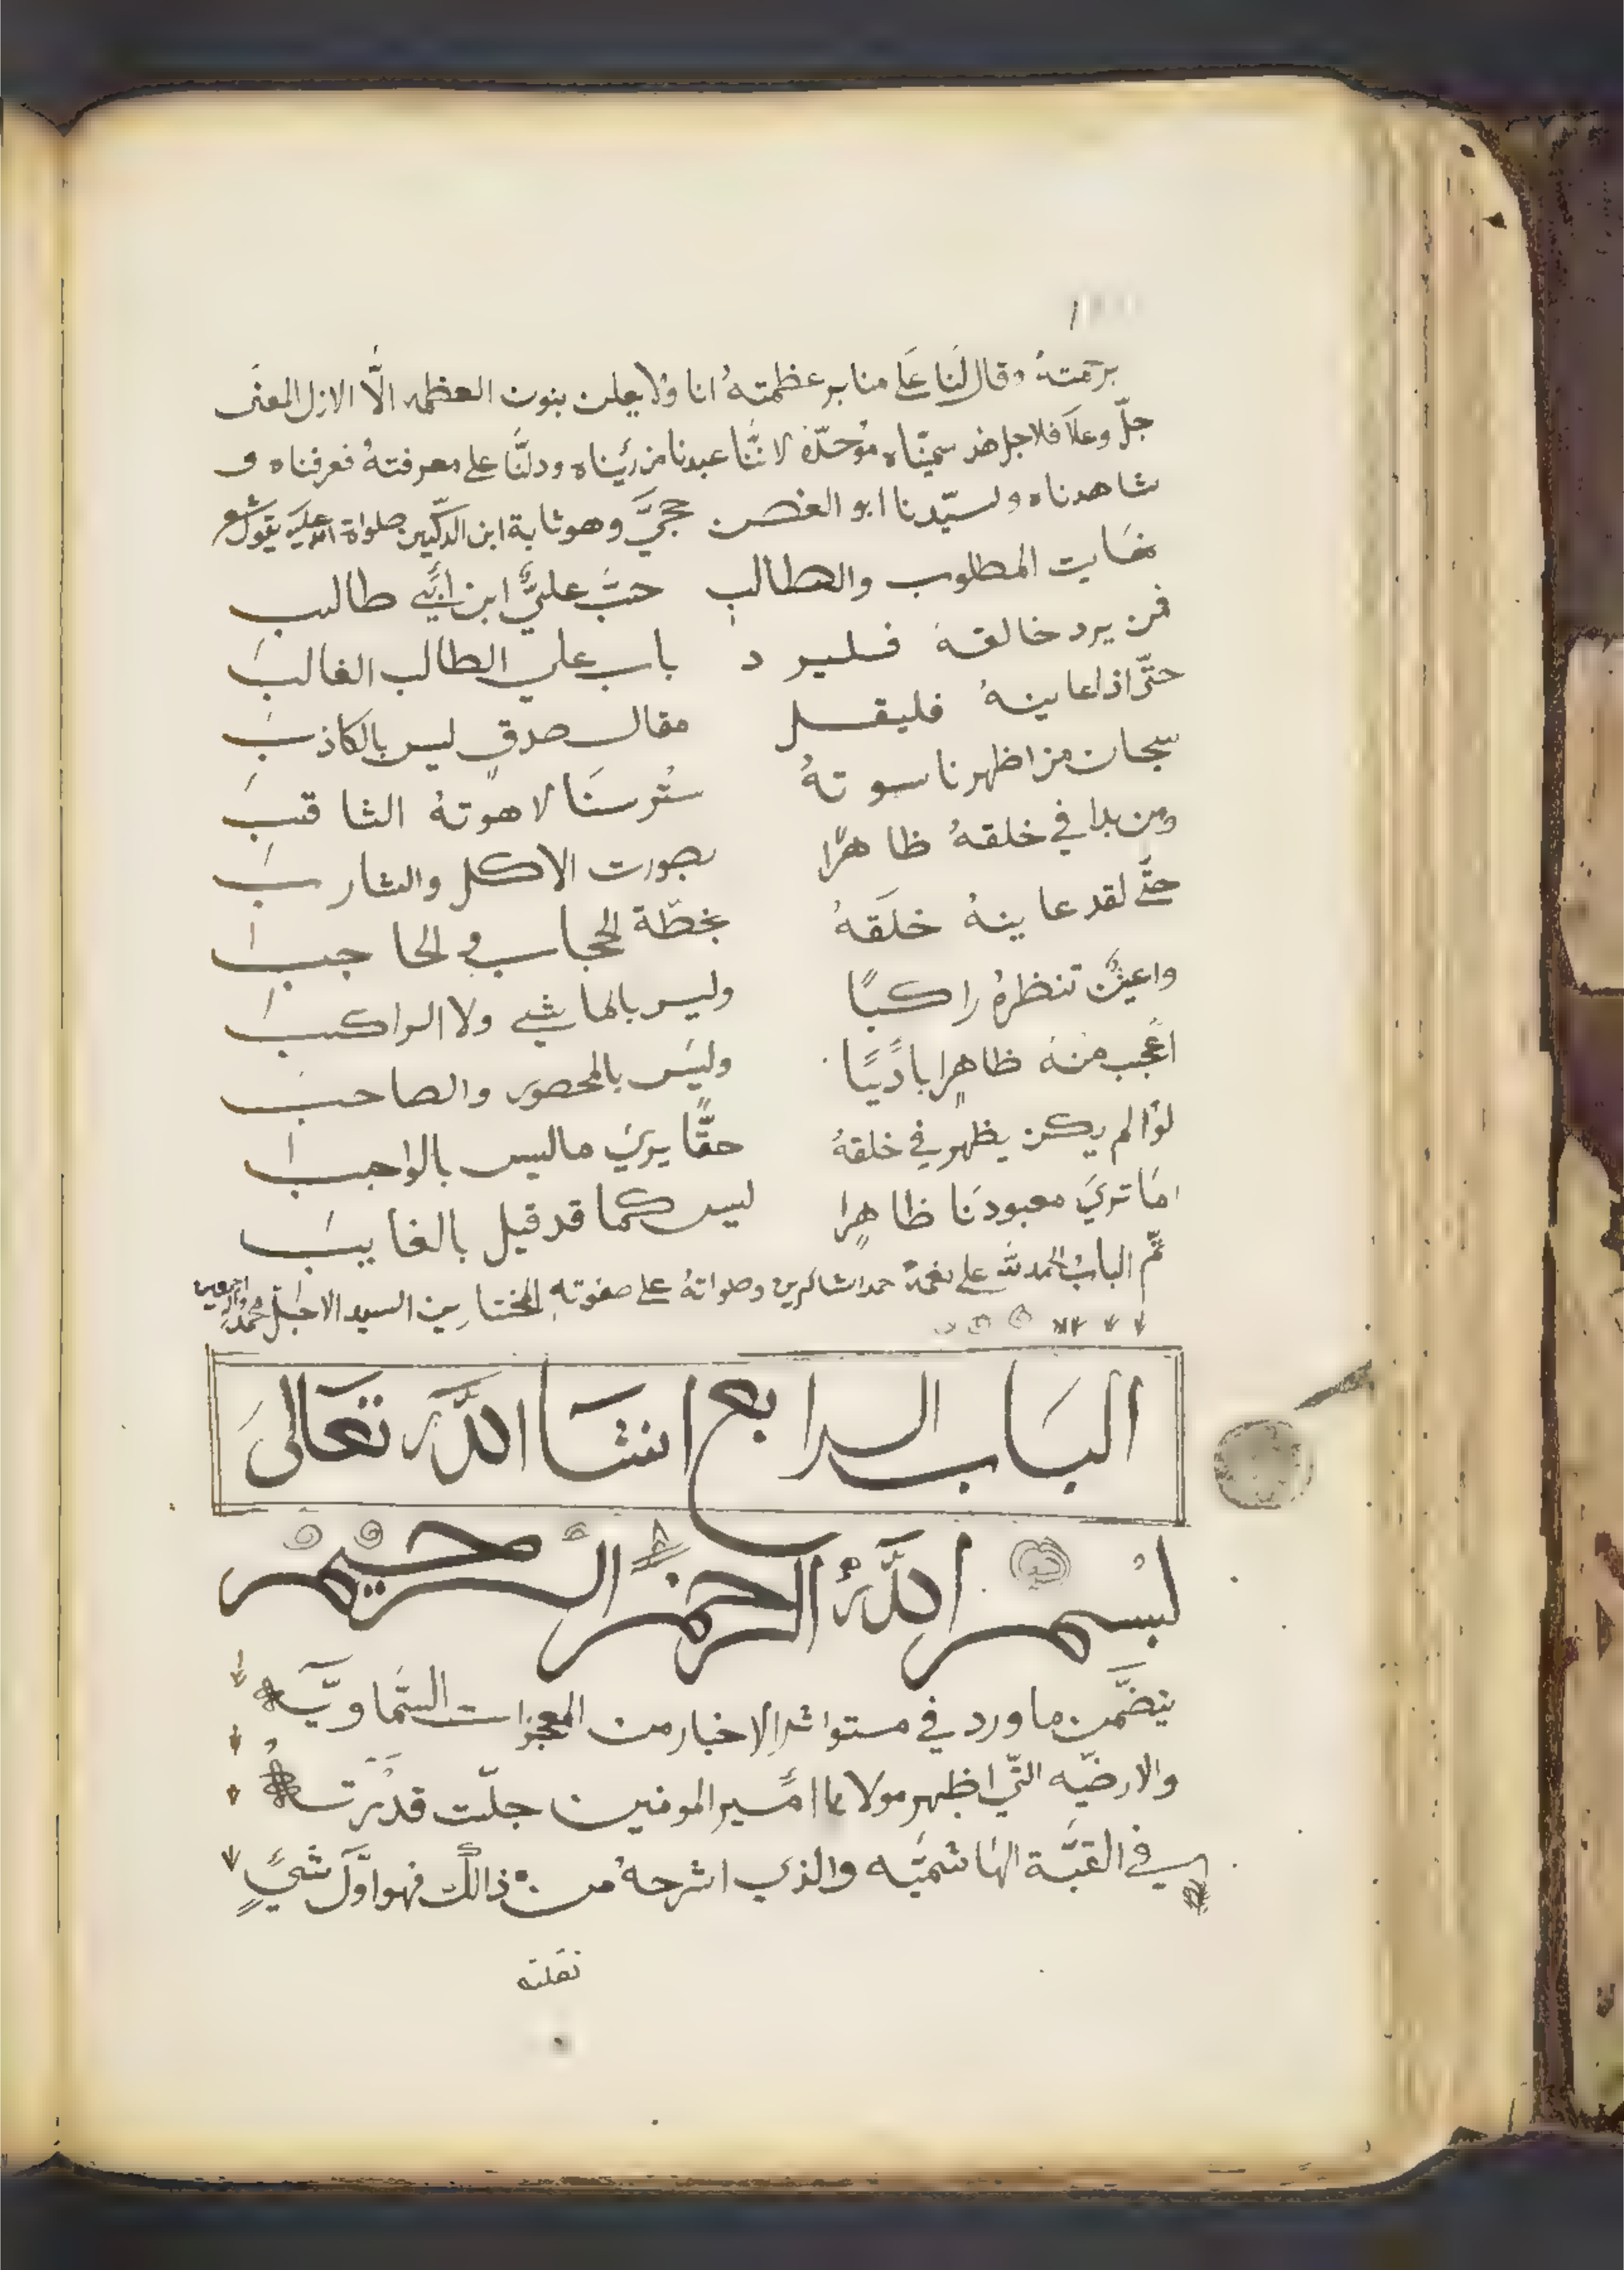 برحمته وقال لنا على منابر عظمته انا ولا يعلن بنون العظمه الّا الازل المعنى
جلّ وعلا فلاجل هذ سميّناه موُحدّه لانّنا عبدنا من رئيناه ودلنّا على معرفتهُ فعرفناه و
شاهدناه ولسيّدنا ابو الغصن حجيَّ وهو ثابة ابن الدكين صلواة الله عليه يقول شعر
نهايت المطلوب والطالب حبّ عليٍّ ابن ابي طالب
فمن يرد خالقهُ فليرد باب علي الطالب الغالب
حتّى اذا عاينهُ فليقل مقال صدقٍ ليس بالكاذب
سبحان من اظهر ناسوتهُ سترُ سنَا لاهوتهُ الثاقب
ومن بدا في خلقهُ ظاهرًا بصورت الاكل والشارب
حتّى لقد عاينهُ خلَقهُ بخطّة الحجاب في الحاجب
واعينٌ تنظرهُ راكبًا وليس بالماشي ولا الراكب
اعجب منهُ ظاهرا بادًيًا وليس بالمحصور والصاحب
لو لم يكن يظهر في خلقهُ حقًّا يرى ماليس بالواجب
امَا ترى معبودنَا ظاهرا ليس كما قد قيل بالغايب
تمّ الباب الحمد لله على نعمة حمد الشاكرين وصلواتهُ على صفوته المختارين السيد الاجل محمد واله اجمعين
الباب الرابع انشا اللّه تعالى
بسم اللّه الرحمن الرحيم
يتضمّن ما ورد في متواثر الاخبار من المعجزات السّماويّه
والارضيّه التّي اظهر مولانا امير المومنين جلّت قدرته
في القبّة الهاشميّه والذي اشرحهُ من ذالك فهو اوّل شيٍ
نقلته